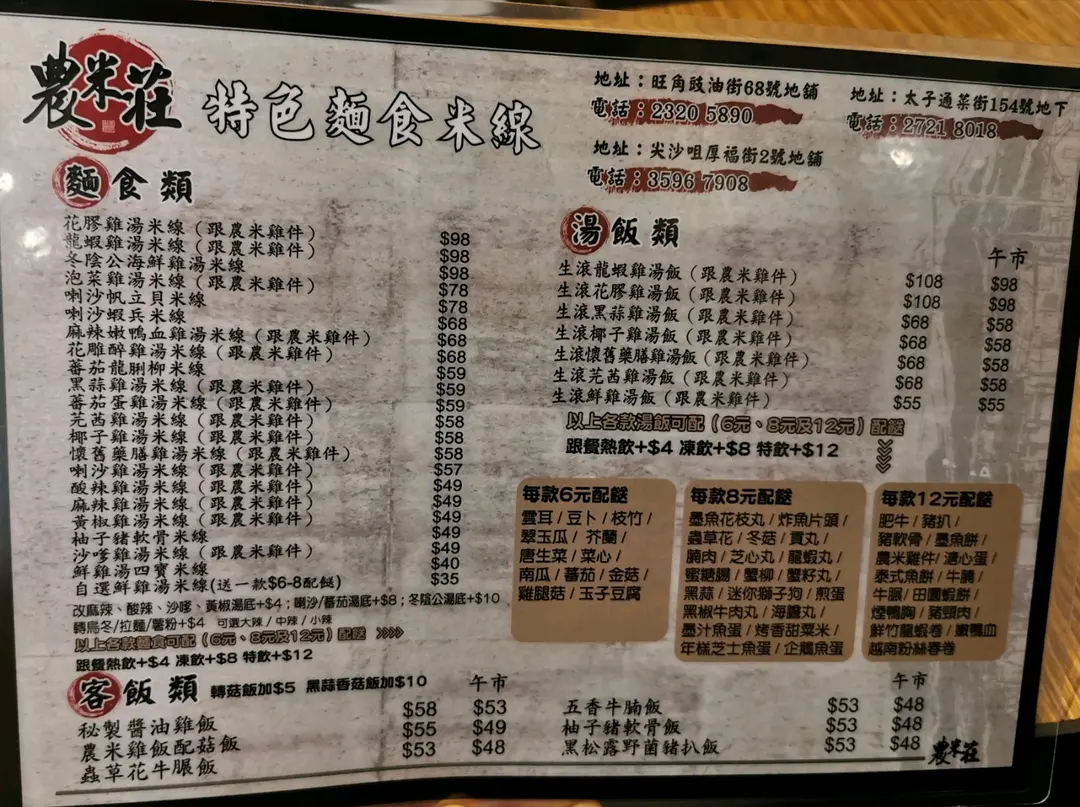 農米莊
特色麵食米線
地址：旺角豉油街68號地舖
電話：2320 5890
地址：太子通菜街154號地下
電話：2721 8018
地址：尖沙咀厚福街2號地舖
電話：3596 7908
麵食類
花膠雞湯米線（跟農米雞件） $98
龍蝦雞湯米線（跟農米雞件） $98
冬陰公海鮮雞湯米線 $98
泡菜雞湯米線（跟農米雞件） $78
喇沙帆立貝米線 $78
喇沙蝦兵米線 $68
麻辣嫩鴨血雞湯米線（跟農米雞件） $68
花雕醉雞湯米線（跟農米雞件） $68
蕃茄龍脷柳米線 $59
黑蒜雞湯米線（跟農米雞件） $59
蕃茄蛋雞湯米線（跟農米雞件） $59
芫茜雞湯米線（跟農米雞件） $58
椰子雞湯米線（跟農米雞件） $58
懷舊藥膳雞湯米線（跟農米雞件） $58
喇沙雞湯米線（跟農米雞件） $57
酸辣雞湯米線（跟農米雞件） $49
麻辣雞湯米線（跟農米雞件） $49
黃椒雞湯米線（跟農米雞件） $49
柚子豬軟骨米線 $49
沙嗲雞湯米線（跟農米雞件） $49
鮮雞湯四寶米線 $40
自選鮮雞湯米線(送一款$6-8配餸) $35
改麻辣、酸辣、沙嗲、黃椒湯底+$4；喇沙/蕃茄湯底+$8；冬陰公湯底+$10
轉烏冬/拉麵/薯粉+$4 可選大辣 / 中辣 / 小辣
以上各款麵食可配（6元、8元及12元）配餸 >>>>
跟餐熱飲+$4 凍飲+$8 特飲+$12
湯飯類
午市
生滾龍蝦雞湯飯（跟農米雞件） $108 $98
生滾花膠雞湯飯（跟農米雞件） $108 $98
生滾黑蒜雞湯飯（跟農米雞件） $68 $58
生滾椰子雞湯飯（跟農米雞件） $68 $58
生滾懷舊藥膳雞湯飯（跟農米雞件） $68 $58
生滾芫茜雞湯飯（跟農米雞件） $68 $58
生滾鮮雞湯飯（跟農米雞件） $55 $55
以上各款湯飯可配（6元、8元及12元）配餸
跟餐熱飲+$4 凍飲+$8 特飲+$12
每款6元配餸
雲耳 / 豆卜 / 枝竹 /
翠玉瓜 / 芥蘭 /
唐生菜 / 菜心 /
南瓜 / 蕃茄 / 金菇 /
雞腿菇 / 玉子豆腐
每款8元配餸
墨魚花枝丸 / 炸魚片頭 /
蟲草花 / 冬菇 / 貢丸 /
腩肉 / 芝心丸 / 龍蝦丸 /
蜜糖腸 / 蟹柳 / 蟹籽丸 /
黑蒜 / 迷你獅子狗 / 煎蛋
黑椒牛肉丸 / 海膽丸 /
墨汁魚蛋 / 烤香甜粟米 /
年糕芝士魚蛋 / 企鵝魚蛋
每款12元配餸
肥牛 / 豬扒 /
豬軟骨 / 墨魚餅 /
農米雞件 / 溏心蛋 /
泰式魚餅 / 牛腩 /
牛腸 / 田園蝦餅 /
煙鴨胸 / 豬頸肉 /
鮮竹龍蝦卷 / 嫩鴨血
越南粉絲春卷
客飯類 轉菇飯加$5 黑蒜香菇飯加$10 午市
秘製醬油雞飯 $58 $53
農米雞飯配菇飯 $55 $49
蟲草花牛脤飯 $53 $48
午市
五香牛腩飯 $53 $48
柚子豬軟骨飯 $53 $48
黑松露野菌豬扒飯 $53 $48
農米莊